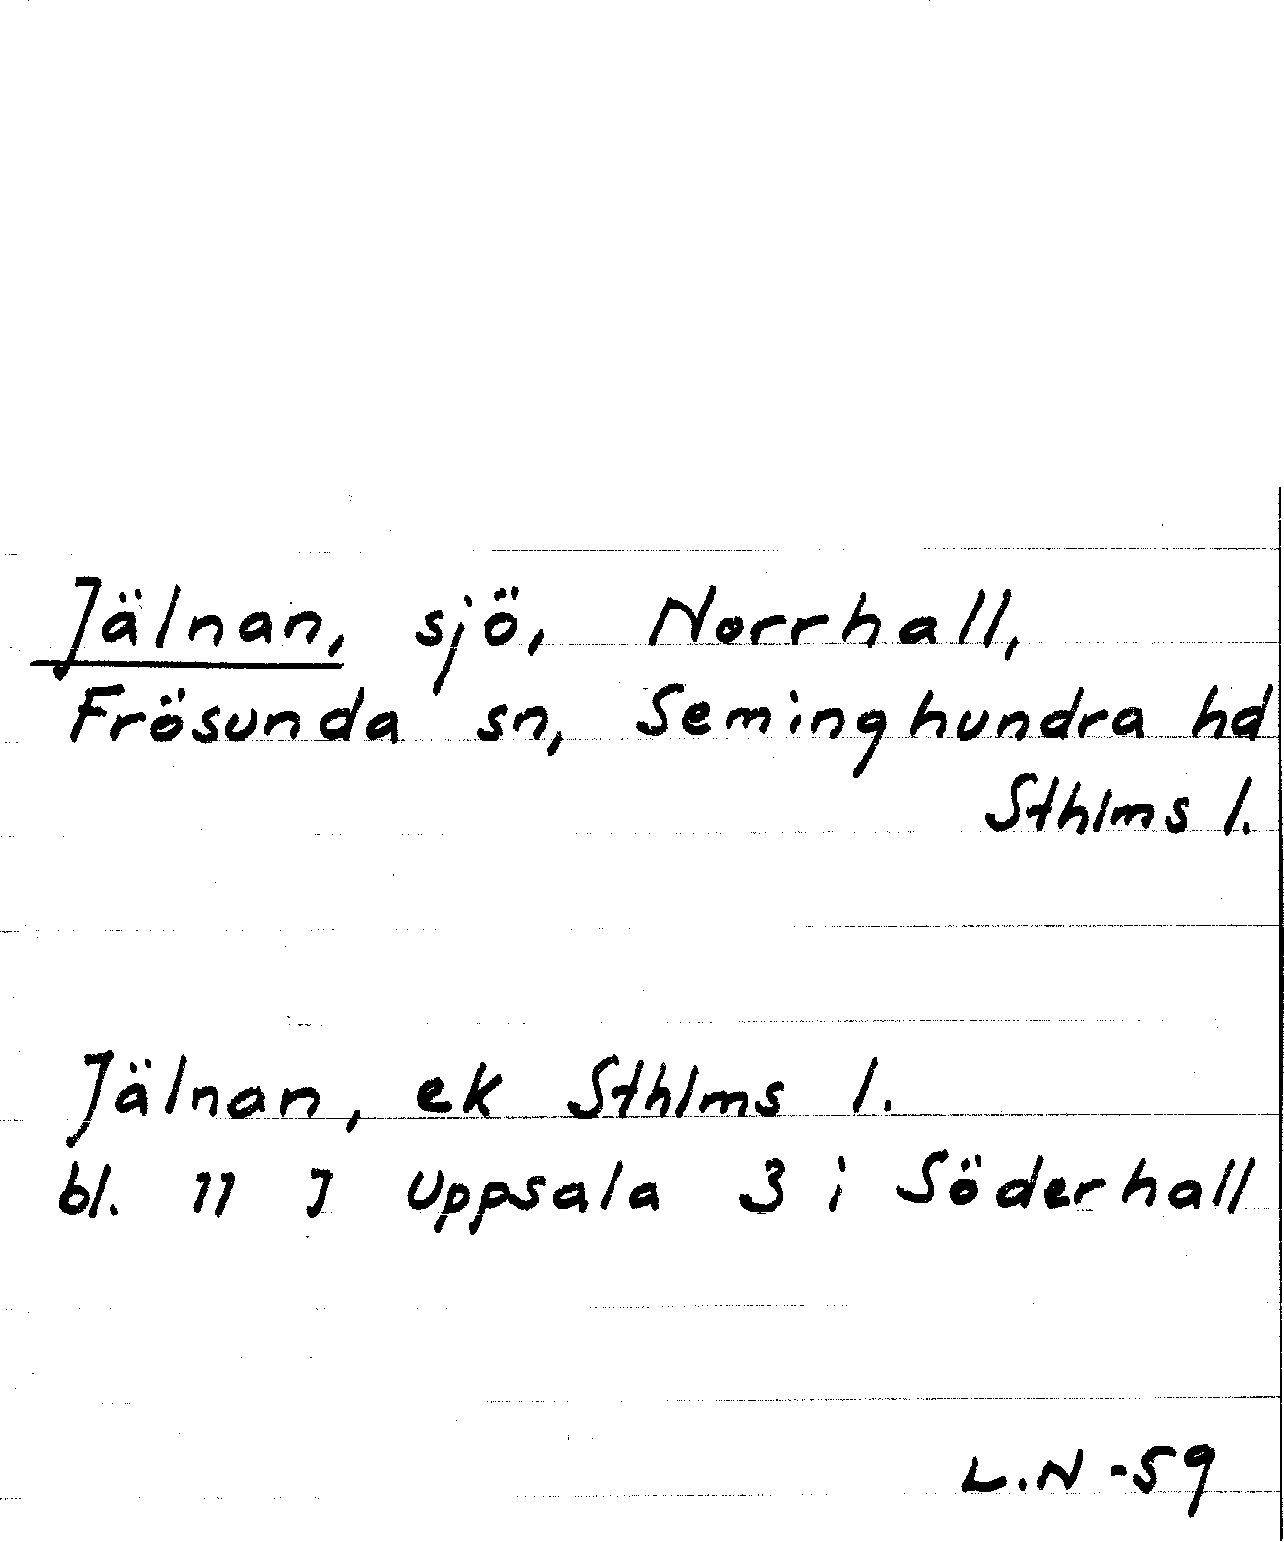 Jälnan, sjö, Norrhall,
Frösunda sn, Seminghundra hd
Sthlms l.
Jälnan, ek Sthlms l.
bl. 11 J Uppsala 3 i Söderhall
L.N -59